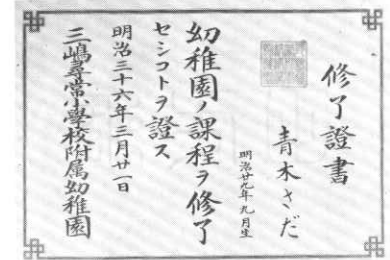 修了證書
青木さだ
明治廿九年九月生
幼稚園ノ課程ヲ修了
セシコトヲ證ス
明治三十六年三月廿一日
三嶋尋常小學校附属幼稚園